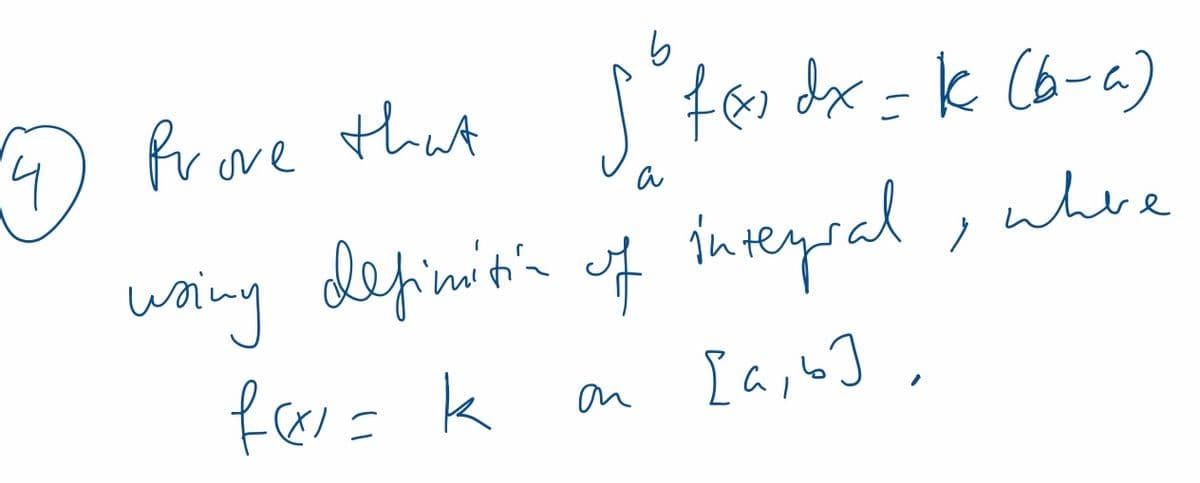 ④ Prove that ∫_a^b f(x) dx = k (b-a)
using definition of integral , where
f(x) = k on [a,b] .